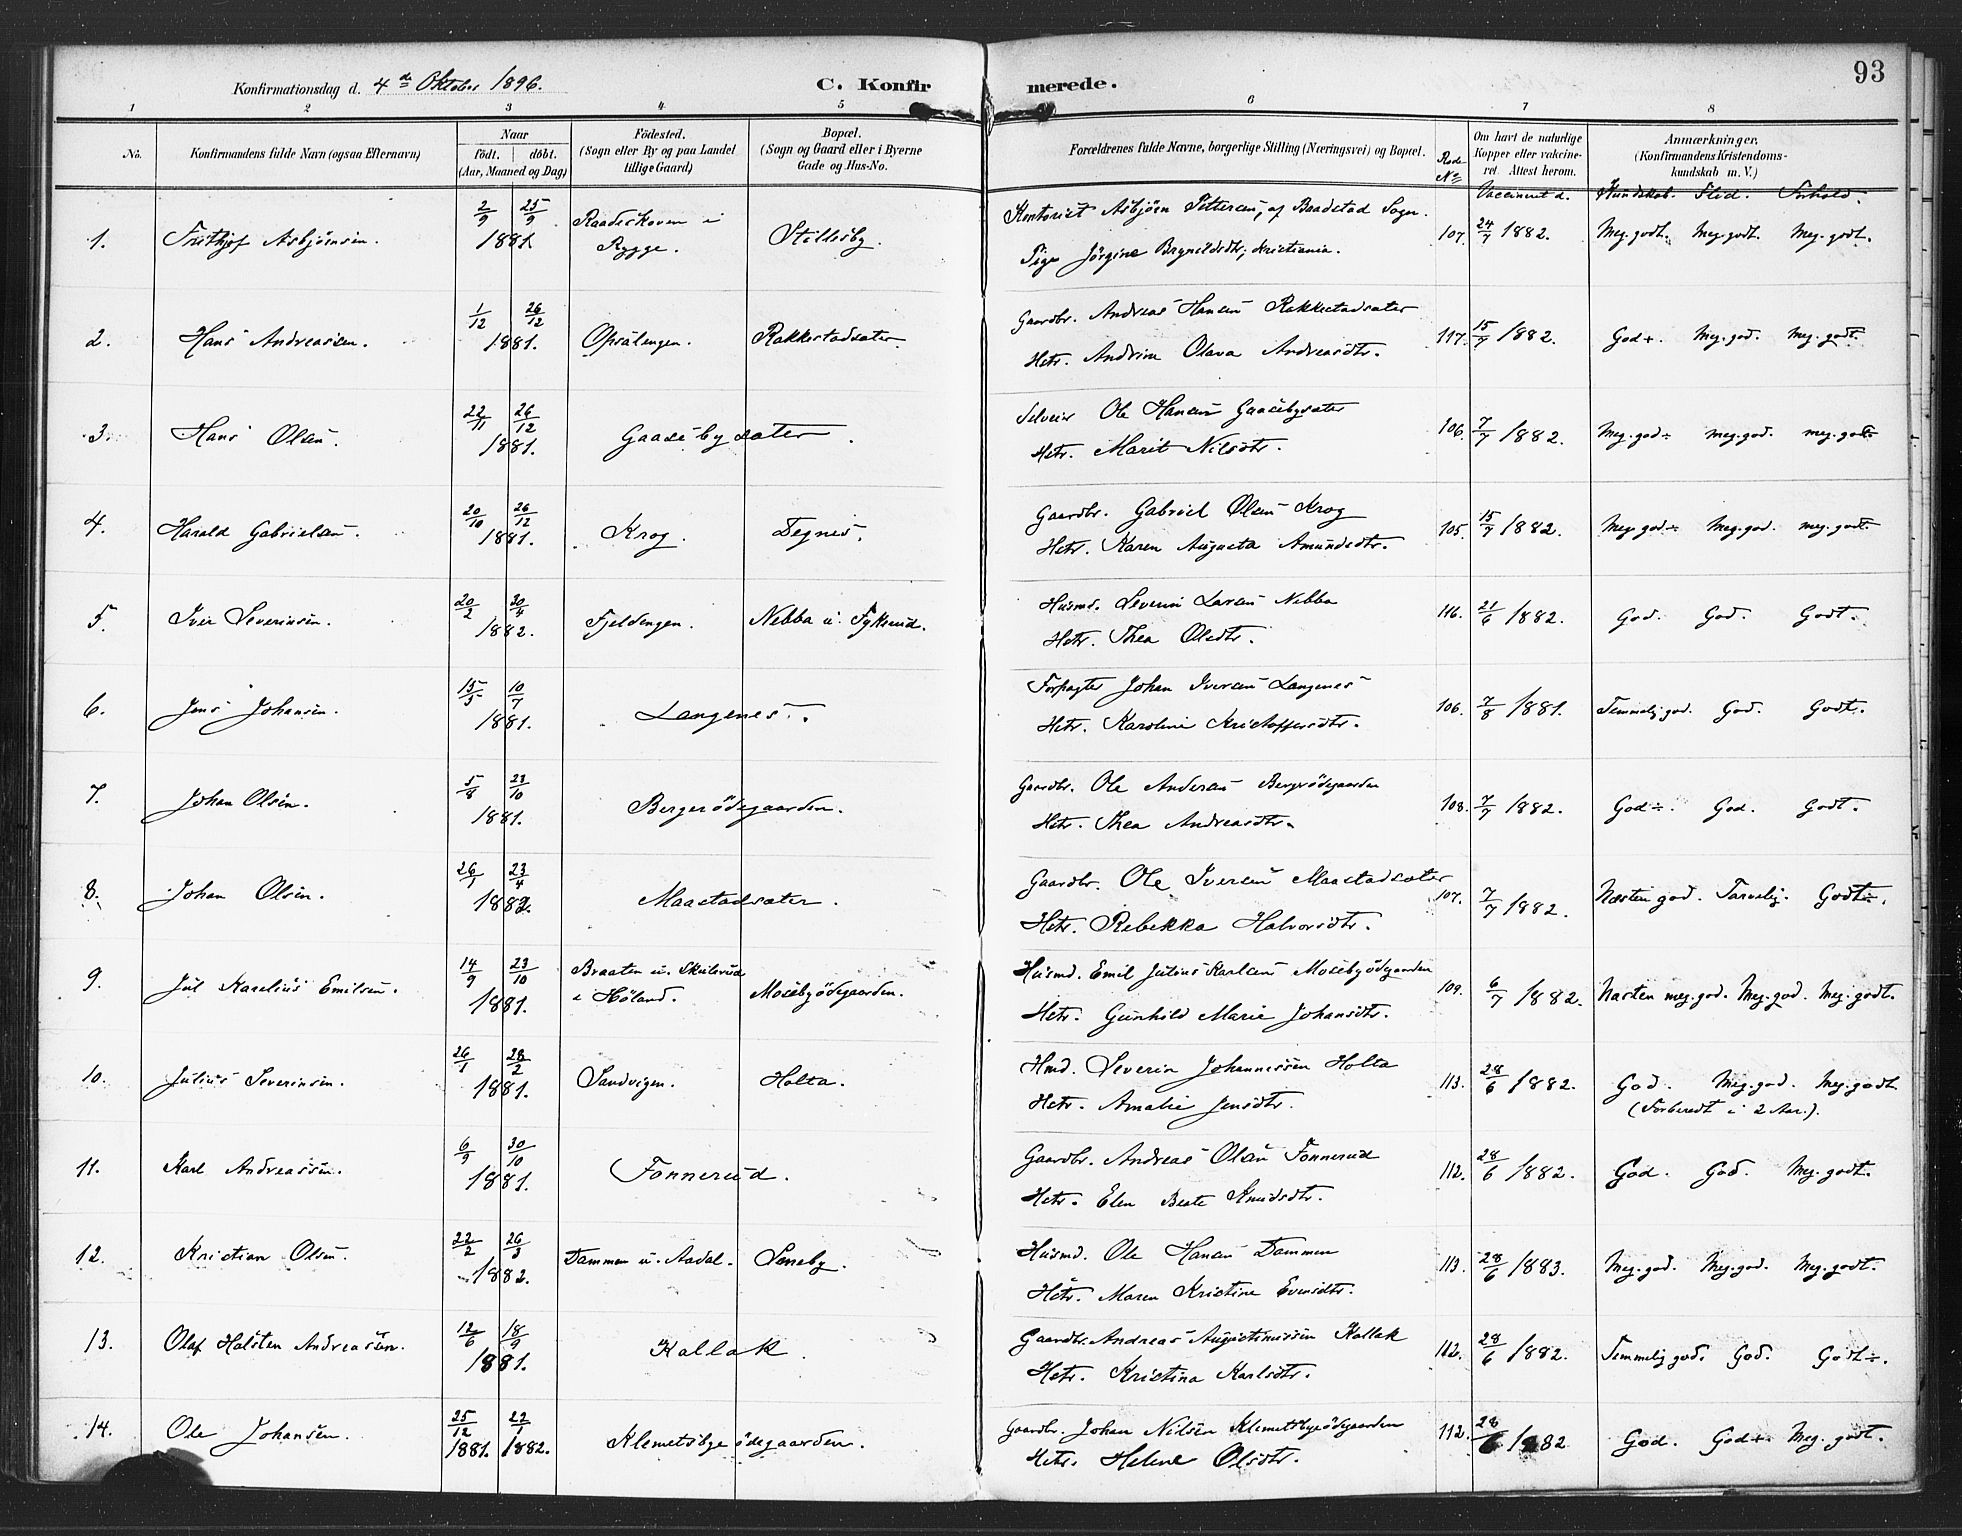 93
Konfirmationsdag d. 4de Oktober 1896. C. Konfirmerede.
1 2 3 4 5 6 7 8
No. Konfirmandens fulde Navn (ogsaa Efternavn) Naar födt. | döbt. (Aar, Maaned og Dag) Födested. (Sogn eller By og paa Landet tillige Gaard) Bopæl. (Sogn og Gaard eller i Byerne Gade og Hus-No. Forældrenes fulde Navne, borgerlige Stilling (Næringsvei) og Bopæl. Rode No. Om havt de naturlige Kopper eller vakcineret. Attest herom. Anmærkninger. (Konfirmandens Kristendomskundskab m. V.)
Vaccineret d. Kundskab. Flid. Forhold.
1. Frithjof Asbjörnsen. 2/9 25/9 1881. Raadeskoven i Rygge. Stillesby. Kontorist Asbjörn Pettersen, af Baadstad Sogn.
Pige Jörgine Brynildsdtr, Kristiania. 107. 24/7 1882. Meg. godt. Meg. godt. Meg. godt.
2. Hans Andreassen. 1/12 26/12 1881. Opsalengen. Rakkestadsæter. Gaardbr. Andreas Hansen Rakkestadsæter
Hstr. Andrine Olava Andreasdtr. 117. 15/7 1882. God+. Meg. god. Meg. godt.
3. Hans Olsen. 22/11 26/12 1881. Gaasebysæter. Selveier Ole Hansen Gaasebysæter
Hstr. Marit Nilsdtr. 106. 7/7 1882. Meg. god÷ meg. god. meg. godt
4. Harald Gabrielsen. 20/10 26/12 1881. Krog. Tegnes. Gaardbr. Gabriel Olsen Krog
Hstr. Karen Augusta Amundsdtr. 105. 15/7 1882. Meg. god÷ Meg. god. meg. godt.
5. Iver Severinsen. 20/2 30/4 1882. Fjeldengen. Nebba u. Fykerud. Husmd. Severin Larsen Nebba
Hstr. Thea Olsdtr. 116. 21/6 1882. God. God. Godt.
6. Jens Johansen. 15/5 10/7 1881. Langenes. Forpagter Johan Iversen Langenes
Hstr. Karoline Kristoffersdtr. 106. 7/8 1881. Temmelig god. God. Godt.
7. Johan Olsen. 5/8 23/10 1881. Bergerödegaarden. Gaardbr. Ole Andersen Bergerödegaarden
Hstr. Thea Andreasdtr. 108. 7/7 1882. God÷. God. Godt.
8. Johan Olsen. 26/1 23/4 1882. Maastadsæter. Gaardbr. Ole Iversen Maastadsæter
Hstr. Rebekka Halvorsdtr. 107. 7/7 1882. Næsten god. Tarvelig. Godt÷.
9. Jul Karelius Emilsen. 14/9 23/10 1881. Braaten u. Skulerud i Höland. Mosebyödegaarden. Husmd. Emil Julius Karlsen Mosebyödegaarden
Hstr. Gunhild Marie Johansdtr. 109. 6/7 1882. Næsten meg. god. Meg. god. Meg. godt.
10. Julius Severinsen. 26/1 28/2 1881. Sandvigen. Holta. Hmd. Severin Johannessen Holta
Hstr. Amalie Jensdtr. 113. 28/6 1882. God. Meg. god. Meg. godt
(Forberedt i 2 Aar.).
11. Karl Andreassen. 6/9 30/10 1881. Fonnerud. Gaardbr. Andreas Olsen Fonnerud
Hstr. Elen Beate Knudsdtr. 112. 28/6 1882. God. God. Meg. godt.
12. Kristian Olsen. 22/2 26/3 1882. Dammen u. Aadal. Seneby. Husmd. Ole Hansen Dammen
Hstr. Maren Kristine Evensdtr. 113. 28/6 1883. Meg. god. Meg. god. Meg. godt.
13. Olaf Halsten Andreassen. 12/6 18/9 1881. Kallak. Gaardbr. Andreas Augustinussen Kallak
Hstr. Kristina Karlsdtr. 112. 28/6 1882. Temmelig god. God. Godt÷.
14. Ole Johansen. 25/12 1881. 22/1 1882. Klemetsbyödegaarden. Gaardbr. Johan Nilsen Klemetsbyödegaarden
Hstr. Helene Olsdtr. 112. 28/6 1882 God. God+. Meg. godt.